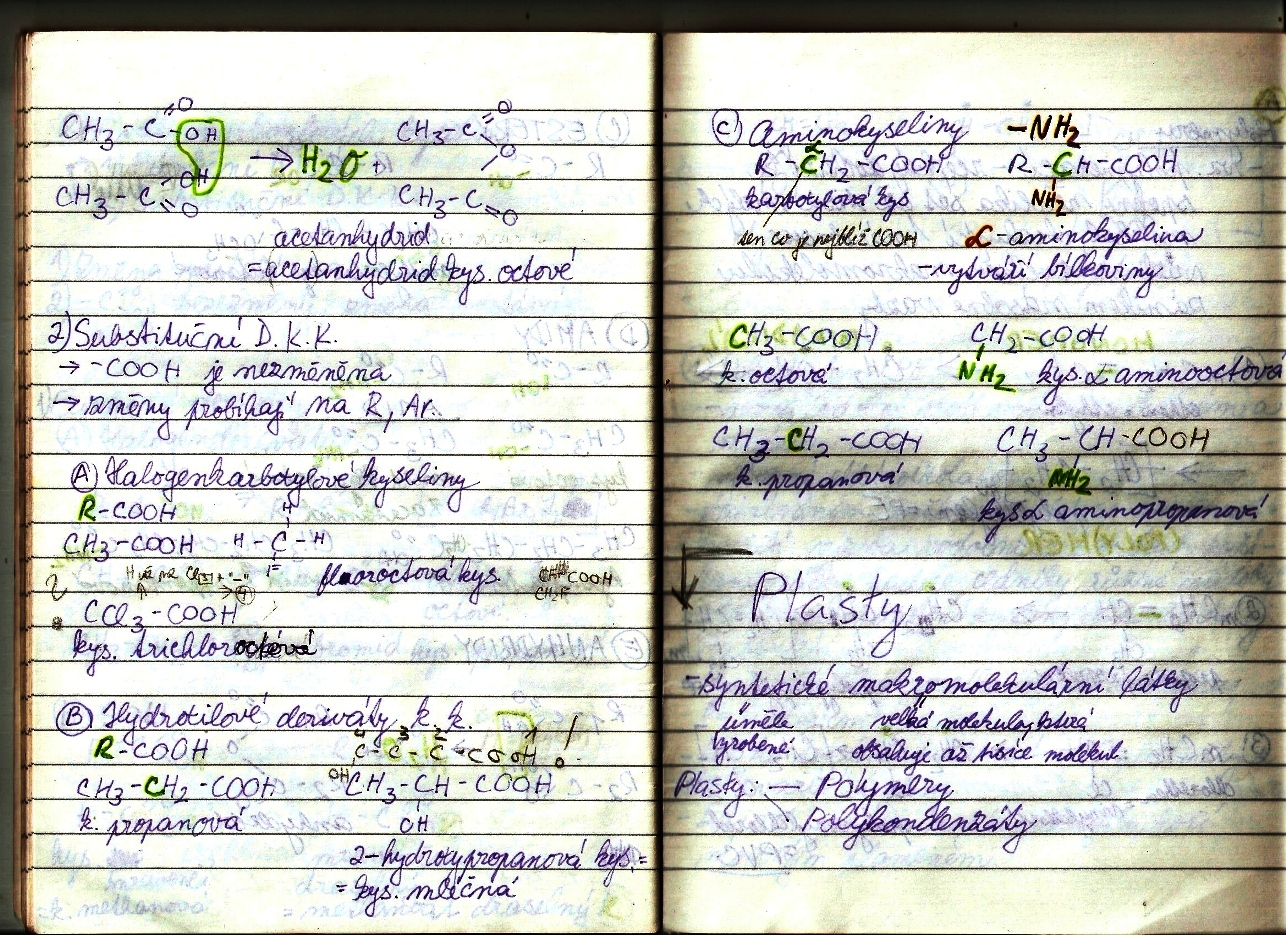 CH3 - C =O
- OH
→ H2O +
CH3 - C =O
O
CH3 - C - OH
=O
CH3 - C =O
acetanhydrid
= acetanhydrid kys. octové
2) Substituční D. K. K.
→ -COOH je nezměněna
→ změny probíhají na R, Ar.
Ⓐ Halogenkarboxylové kyseliny
R-COOH
H
CH3-COOH H - C - H
F
fluoroctová kys.
COOH
CH2F
CCl3-COOH
kys. trichloroctová
Ⓑ Hydroxilové deriváty k. k.
R-COOH
4 3 2 1
C - C - C - COOH !
CH3-CH2-COOH
OH CH3-CH-COOH
k. propanová
OH
2-hydroxypropanová kys. =
= kys. mléčná
Ⓒ Aminokyseliny -NH2
R - CH2 - COOH R - CH - COOH
α
NH2
karboxylová kys
ten co je nejblíž COOH
α-aminokyselina
-vytváří bílkoviny
CH3-COOH CH2-COOH
k. octová NH2 kys. α aminooctová
CH3-CH2-COOH CH3-CH-COOH
k. propanová NH2
kys α aminopropanová
Plasty
-syntetické makromolekulární látky
uměle velká molekula, která
vyrobené obsahuje až tisíce molekul.
Plasty: — Polymery
Polykondenzáty